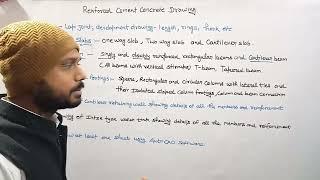 Reinforced Cement Concrete Drawing
- Lap joint, development drawing - length, rings, hook etc
Slabs :- one way slab, Two way slab and Cantilever slab.
:- Singly and doubly reinforced rectangular beams and Cantilever beam
(All beams with vertical stirrups) T-beam Tapered beam
footings - Square, Rectangular and circular columns with lateral ties and
their Isolated sloped column footings, column and beam connection
Cantilever retaining wall showing details of all the members and reinforcement
of Intze type water tank showing details of all the members and reinforcement
at least one sheet using AutoCAD software